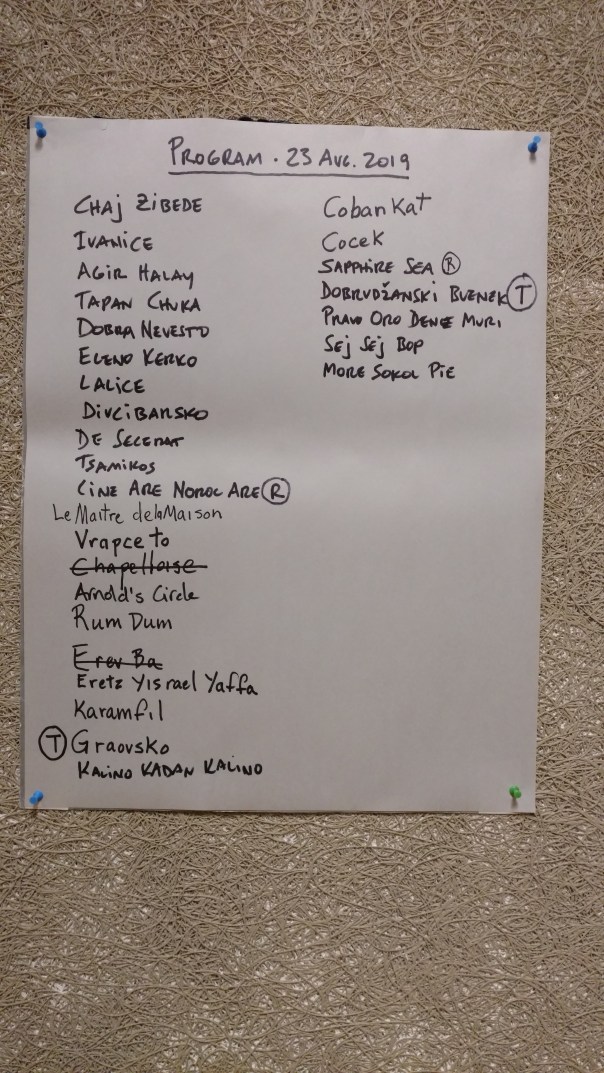 PROGRAM · 23 AUG. 2019
CHAJ ZIBEDE
IVANICE
AGIR HALAY
TAPAN CHUKA
DOBRA NEVESTO
ELENO KERKO
LALICE
DIVCIBARSKO
DE SECERAT
TSAMIKOS
CINE ARE NOROC ARE Ⓡ
Le Maitre de la Maison
Vrapce to
Chapelloise
Arnold's Circle
Rum Dum
Erev Ba
Eretz Yisrael Yaffa
Karamfil
Ⓣ Graovsko
KALINO KADAN KALINO
Coban Kat
Cocek
SAPPHIRE SEA Ⓡ
DOBRUDŽANSKI BUENEK Ⓣ
PRAVO ORO DENE MURI
SEJ SEJ BOP
MORE SOKOL PIE